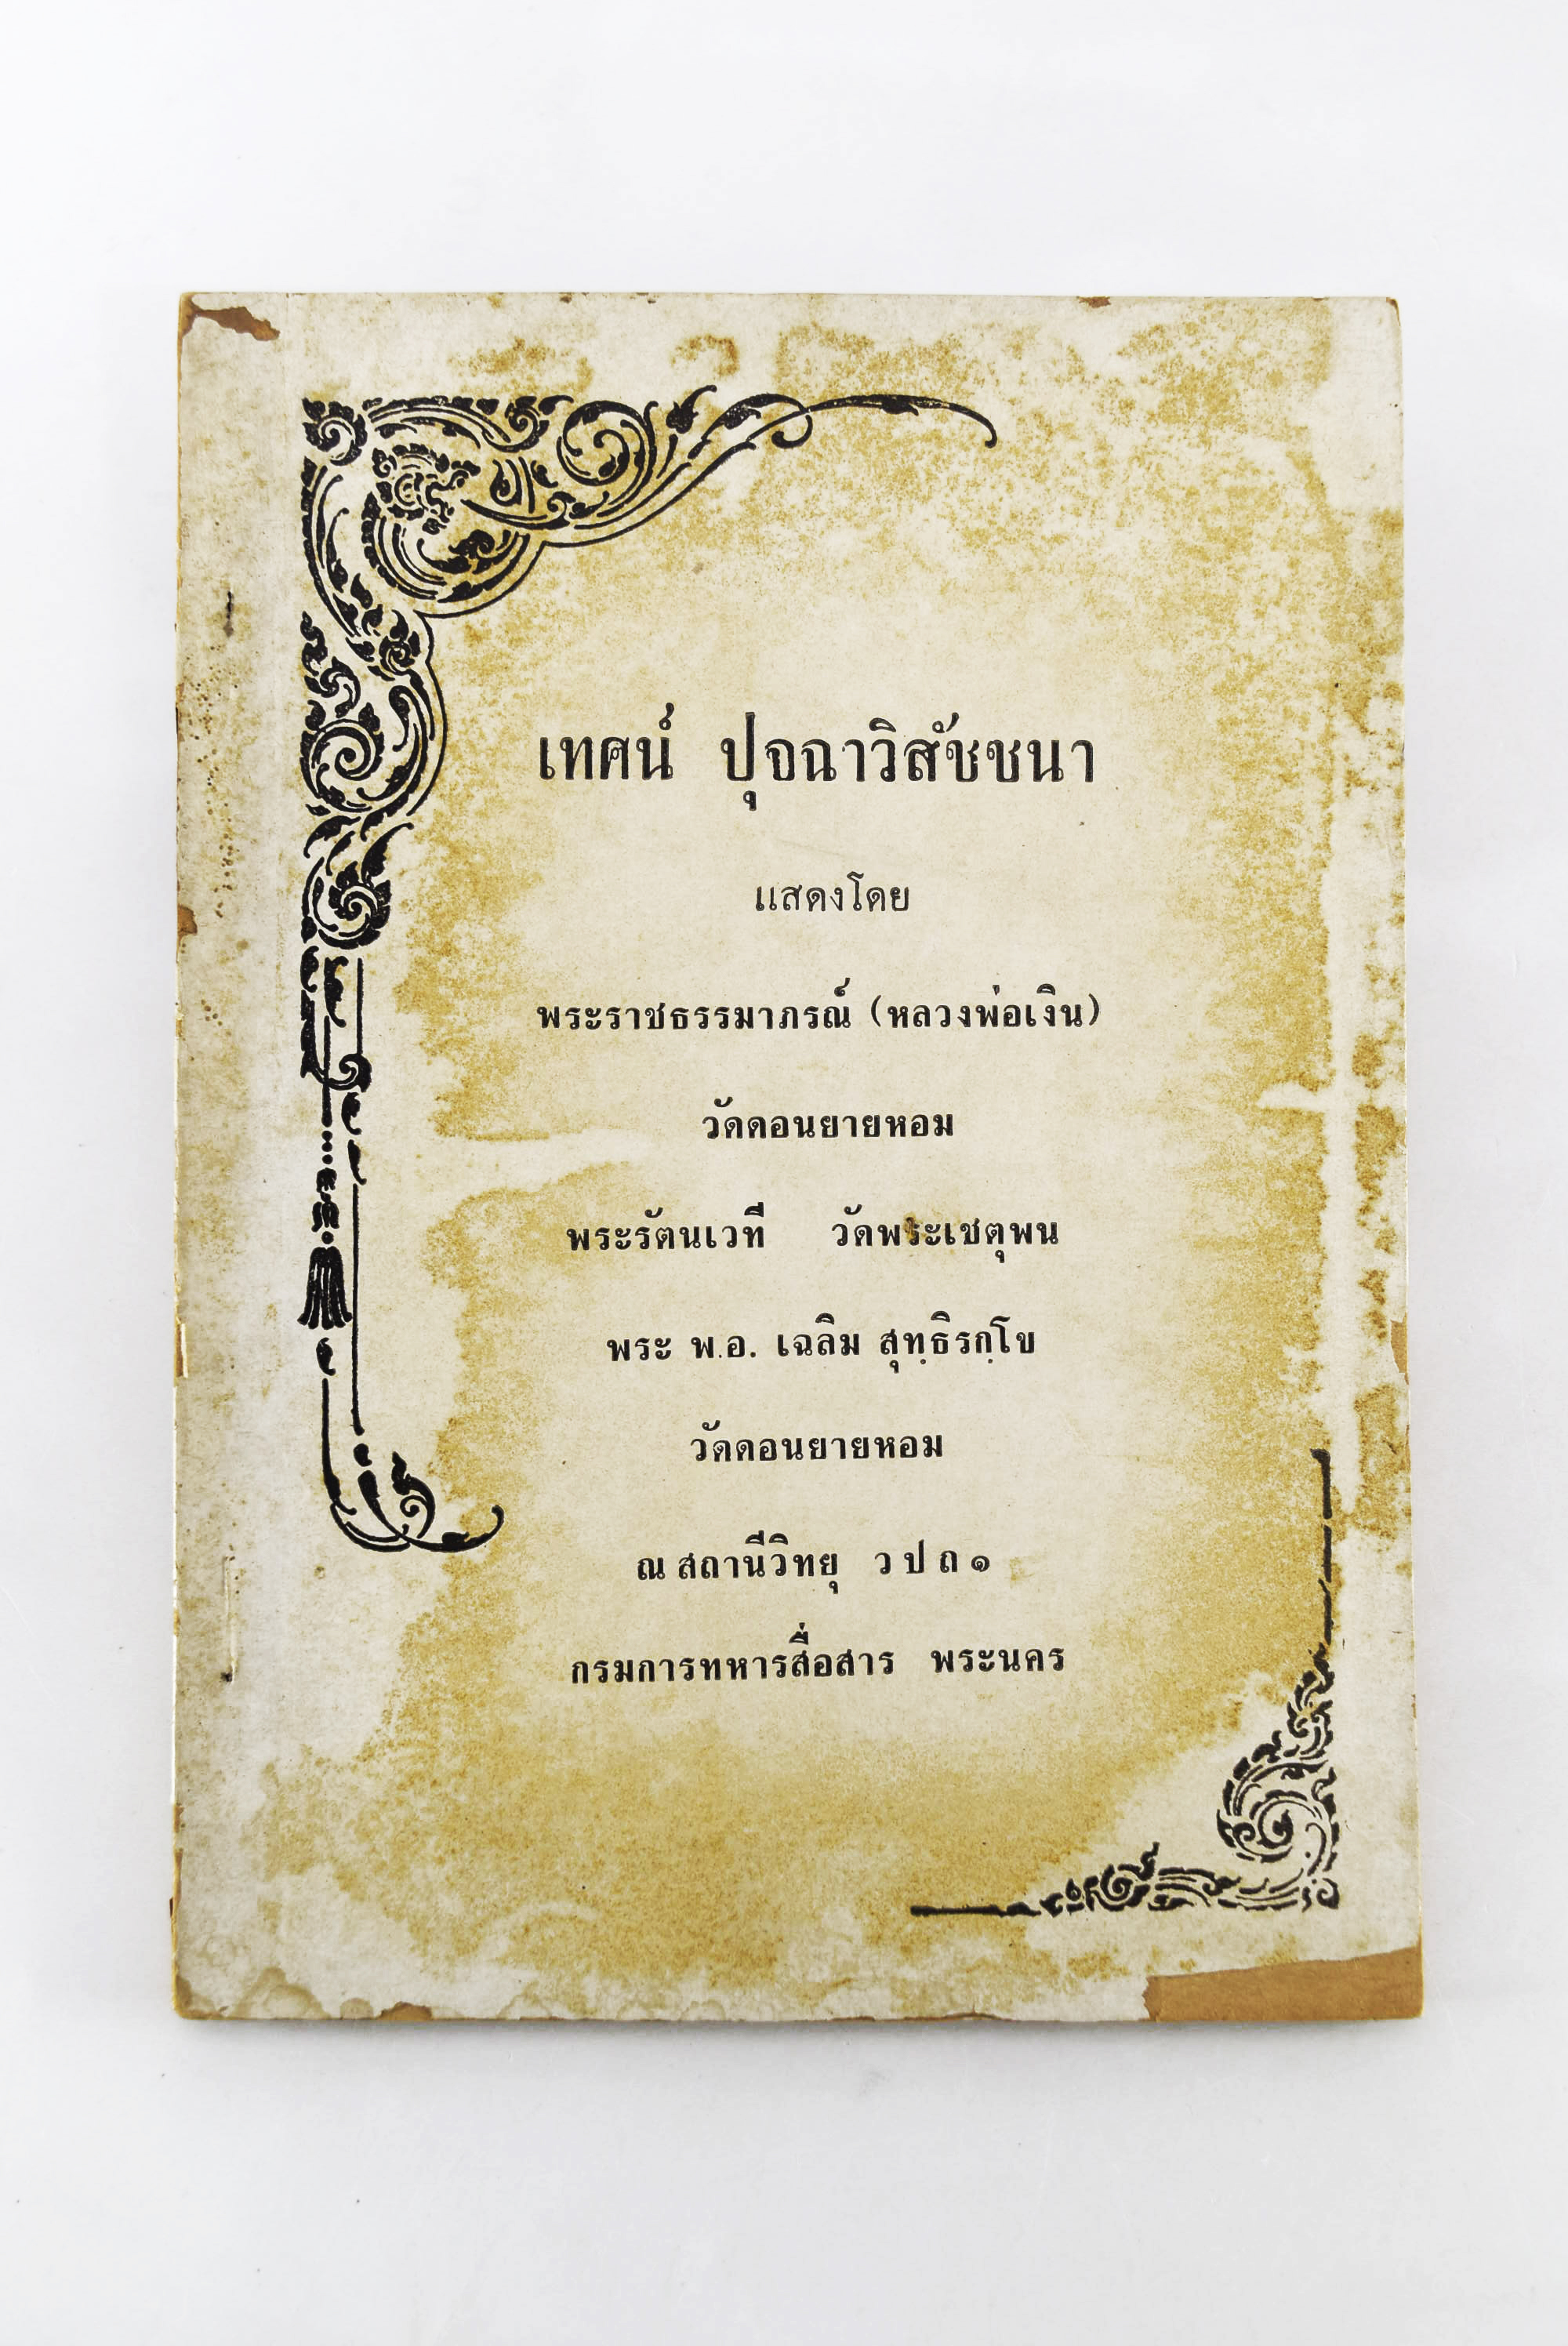 เทศน์ ปุจฉาวิสัชชนา
แสดงโดย
พระราชธรรมาภรณ์ (หลวงพ่อเงิน)
วัดดอนยายหอม
พระรัตนเวที วัดพระเชตุพน
พระ พ.อ. เฉลิม สุทฺธิรกฺโข
วัดดอนยายหอม
ณ สถานีวิทยุ ว ป ถ ๑
กรมการทหารสื่อสาร พระนคร